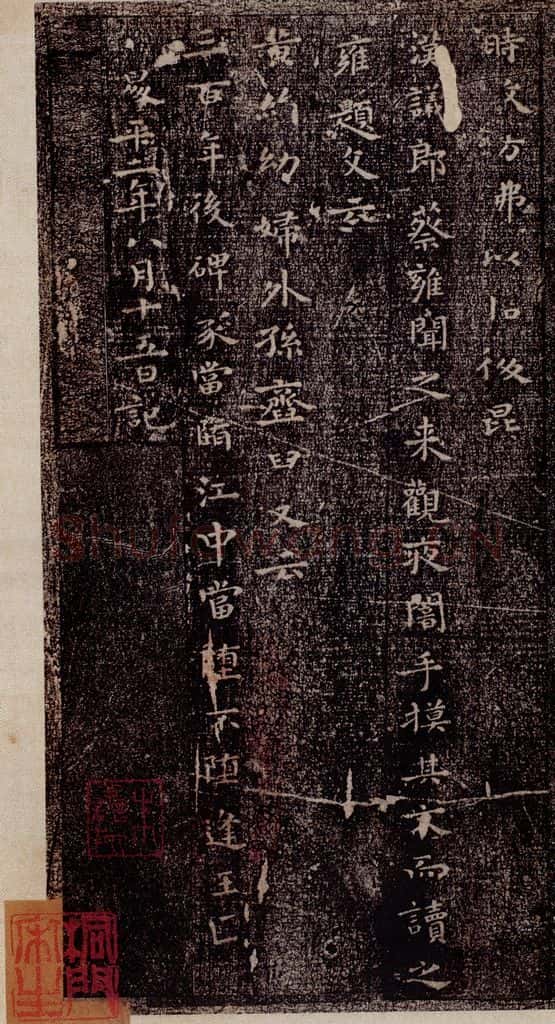 時文方弗以后後昆
漢議郎蔡雍聞之来觀夜闇手摸其文而讀之
雍題文云
黃絹幼婦外孫齏臼又云
三百年後碑冢當墮江中當墮不墮逢王叵
升平二年八月十五日記
shufawang.CN